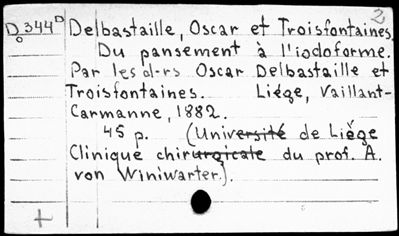 2
D 344 D Delbastaille, Oscar et Troisfontaines,
o Du pansement à l'iodoforme.
Par les d-rs Oscar Delbastaille et
Troisfontaines. Liége, Vaillant-
Carmanne, 1882.
45 p. (Université de Liège
Clinique chirurgicale du prof. A.
von Winiwarter).
+